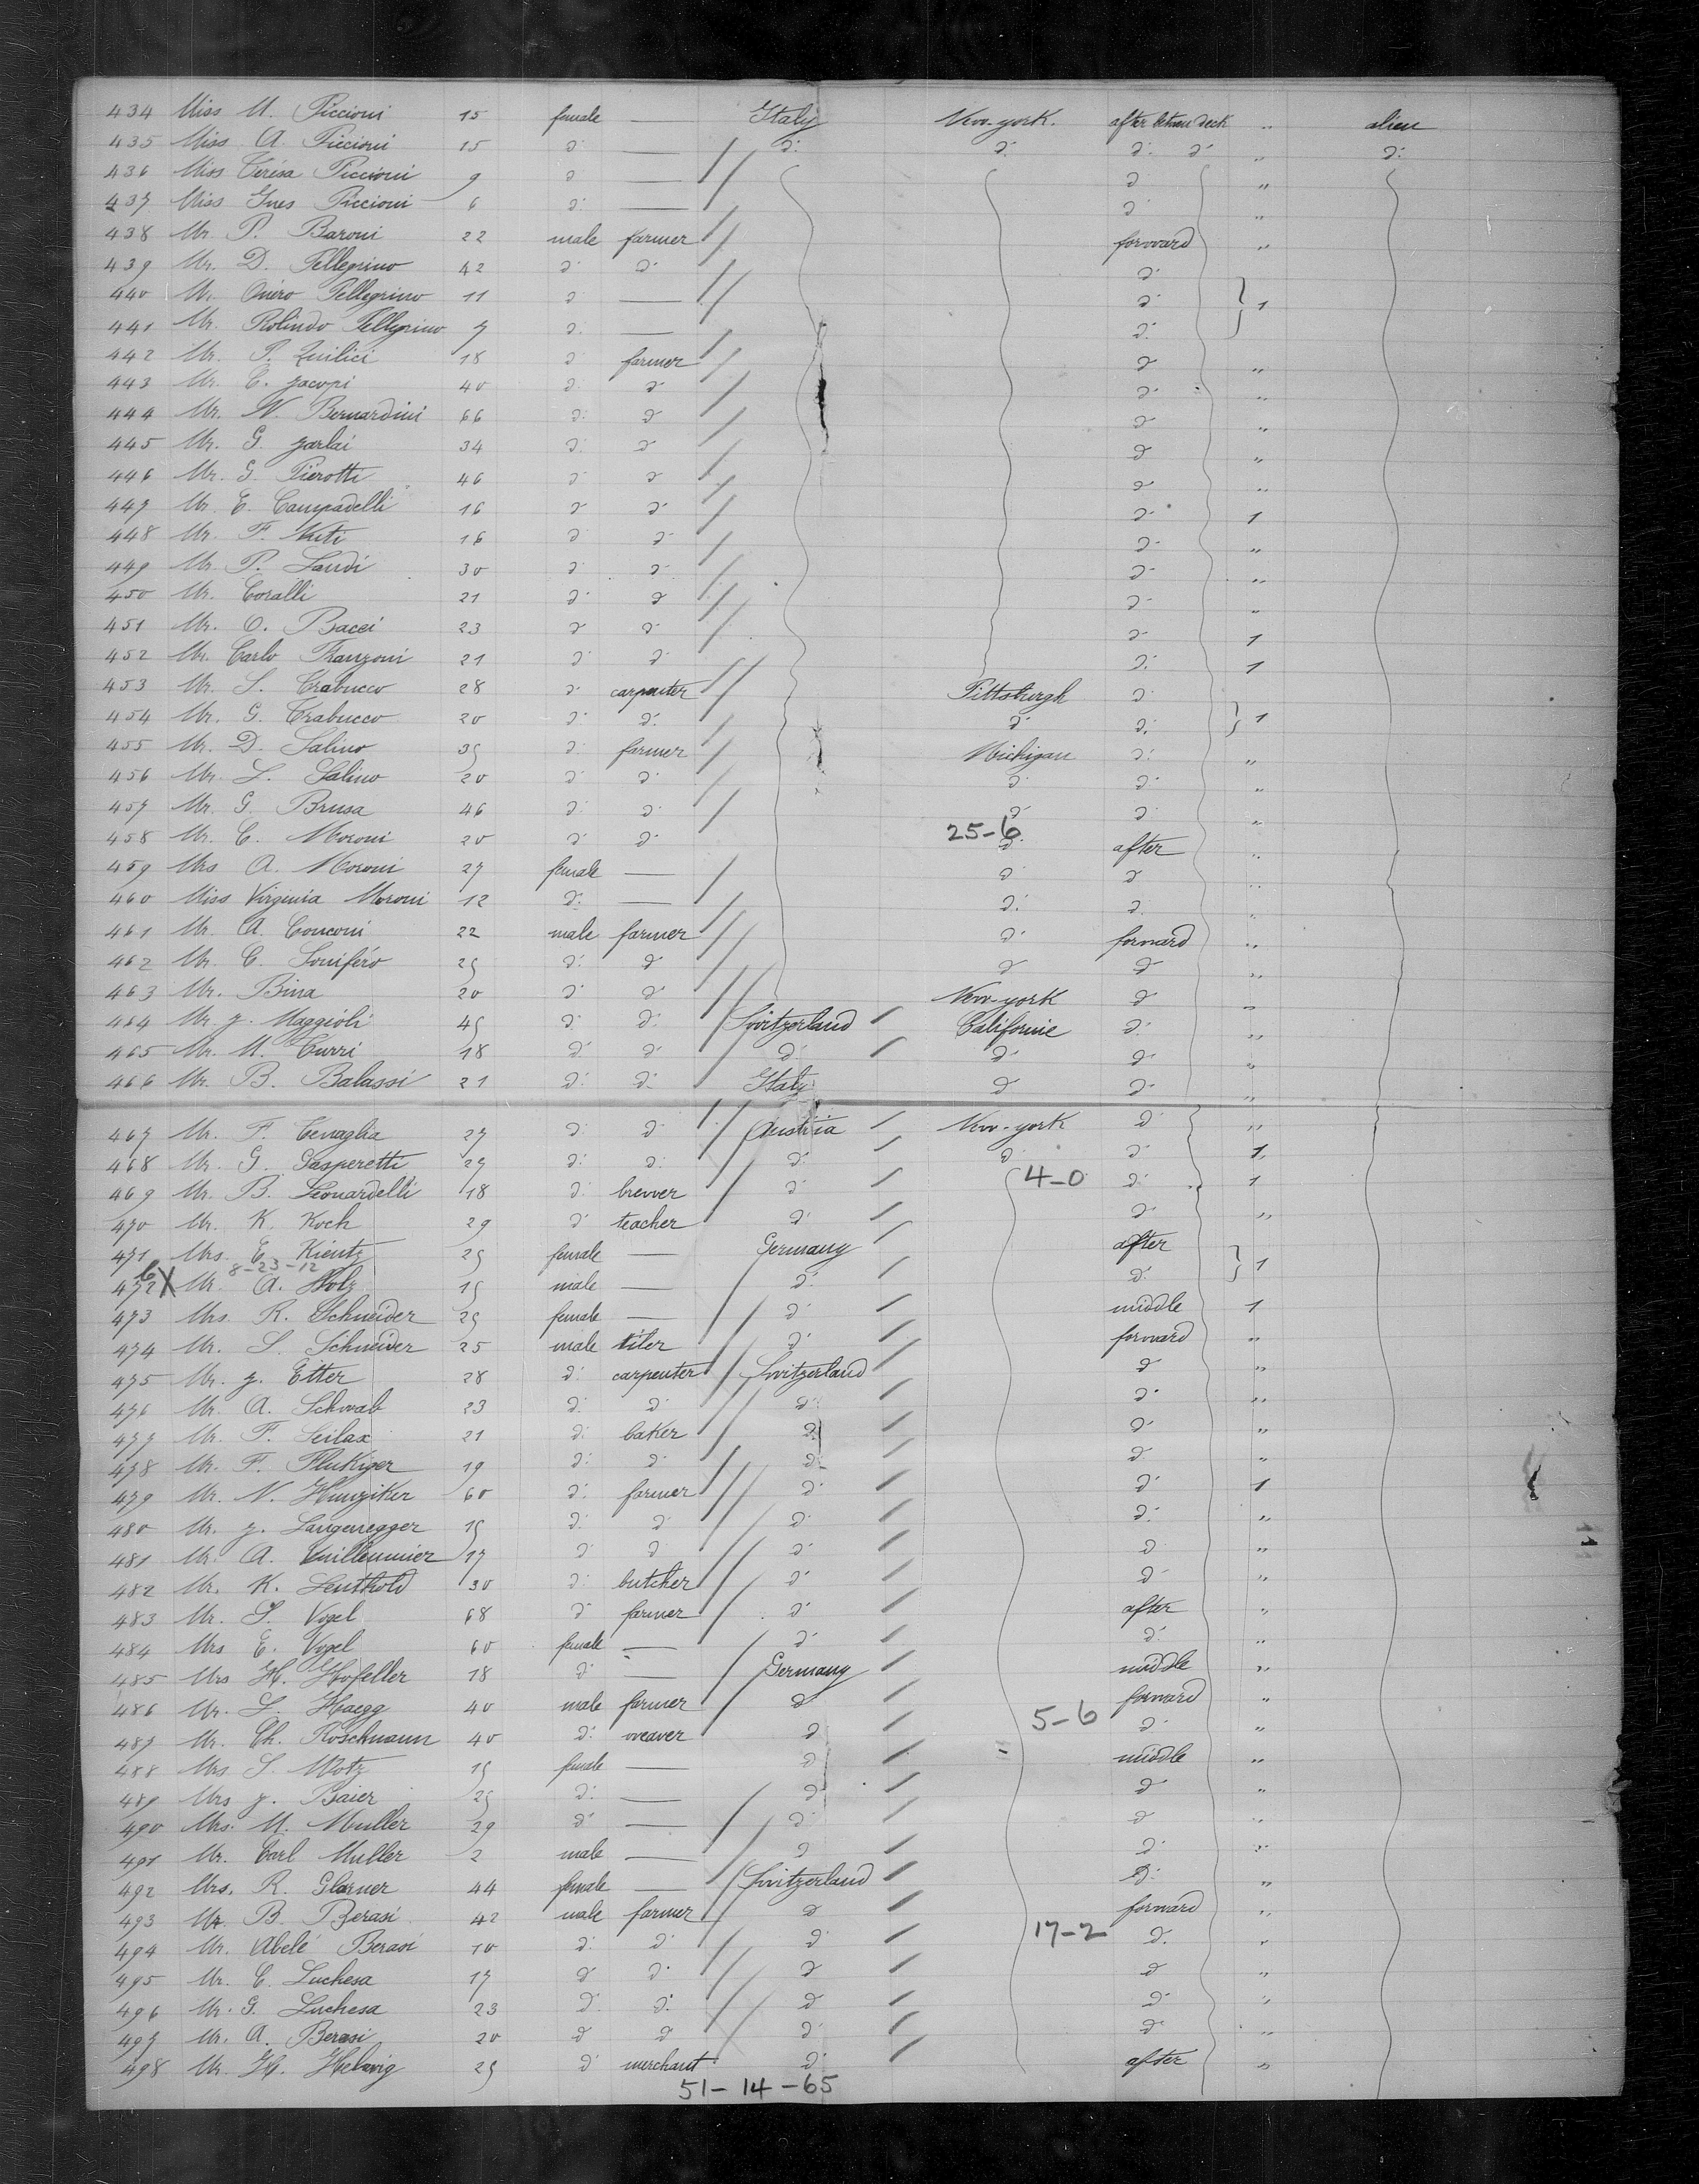 434 Miss M. Piccioni 15 female — Italy New-york. after betwen deck „ alien
435 Miss A. Piccioni 15 d: — d: d: d: d: „ d:
436 Miss Térésa Piccioni 9 d — d „
437 Miss Ines Piccioni 6 d: — d: „
438 Mr. P. Baroni 22 male farmer forward „
439 Mr. D. Pellegrino 42 d: d: d:
440 Mr. Onéro Pellegrino 11 d — d: } 1
441 Mr. Rolindo Pellegrino 7 d. — d:
442 Mr. P. Quilici 18 d farmer d „
443 Mr. C. Jacopi 40 d. d d: „
444 Mr. N. Bernardini 66 d: d d „
445 Mr. G. Jarlai 34 d: d d „
446 Mr. G. Pierotti 46 d d d „
447 Mr. E. Campadelli 16 d d: d: 1
448 Mr. F. Nuti 16 d d: d: „
449 Mr. P. Landi 30 d d d: „
450 Mr. Coralli 21 d: d d: „
451 Mr. O. Bacci 23 d d: d: 1
452 Mr. Carlo Franzoni 21 d: d: d: 1
453 Mr. S. Trabucco 28 d: carpenter Pittsburgh d:
454 Mr. G. Trabucco 20 d: d: d: d: } 1
455 Mr. D. Salino 35 d: farmer Michigan d: „
456 Mr. L. Salino 20 d: d: d: d: „
457 Mr. G. Brusa 46 d: d: d: d: „
458 Mr. C. Moroni 20 d: d: 25-6 d: after „
459 Mrs A. Moroni 27 female — d d „
460 Miss Virginia Moroni 12 d: — d: d. „
461 Mr. A. Conconi 22 male farmer d: forward „
462 Mr. C. Soniféro 25 d: d d d „
463 Mr. Bina 20 d: d: New-york d: „
464 Mr. J. Maggioli 45 d: d: Switzerland Californie d: „
465 Mr. M. Curri 18 d: d: d: d: d: „
466 Mr. B. Balassi 21 d: d: Italy d d: „
467 Mr. F. Cenaglia 27 d: d: Austria New-york d „
468 Mr. G. Gasperetti 27 d: d: d: d: d: 1
469 Mr. B. Leonardelli 18 d: brewer d: 4-0 d: 1
470 Mr. K. Koch 29 d: teacher d: d: „
471 Mrs. E. Kientz 25 female — Germany after
8-23-12
472 X Mr. A. Holz 15 male — d: d: } 1
473 Mrs. R. Schneider 25 female — d: middle 1
474 Mr. L. Schneider 25 male tiler d: forward „
475 Mr. J. Etter 28 d: carpenter Switzerland d „
476 Mr. A. Schwab 23 d: d: d: d: „
477 Mr. F. Seilax 21 d: baker d: d: „
478 Mr. F. Flukiger 19 d: d: d: d „
479 Mr. N. Hunziker 60 d: farmer d: d: 1
480 Mr. J. Langenegger 15 d: d: d: d: „
481 Mr. A. Vuilleumier 17 d: d d: d „
482 Mr. K. Leuthold 30 d: butcher d: d: „
483 Mr. S. Vogel 68 d: farmer d: after „
484 Mrs E. Vogel 60 female — d: d: „
485 Mrs H. Hofeller 18 d: — Germany middle „
486 Mr. L. Haegg 40 male farmer d forward „
487 Mr. Ch. Roschmann 40 d: weaver d 5-6 d: „
488 Mrs S. Motz 15 female — d middle „
489 Mrs J. Baier 25 d: — d: d „
490 Mrs. M. Muller 29 d: — d: d „
491 Mr. Carl Muller 2 male — d d: „
492 Mrs. R. Glarner 44 female — Switzerland d: „
493 Mr. B. Berasi 42 male farmer d forward „
494 Mr. Abelé Berasi 10 d: d: d: 17-2 d: „
495 Mr. C. Luchesa 17 d d: d d „
496 Mr. G. Luchesa 23 d: d: d d: „
497 Mr. A. Berasi 20 d d d: d: „
498 Mr. H. Helwig 25 d: merchant d: after „
51-14-65